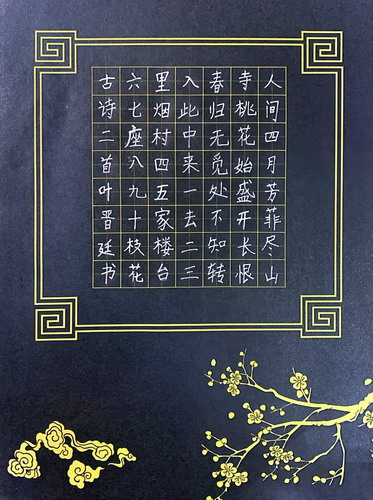 人间四月芳菲尽山
寺桃花始盛开长恨
春归无觅处不知转
入此中来一去二三
里烟村四五家楼台
六七座八九十枝花
古诗二首叶晋廷书